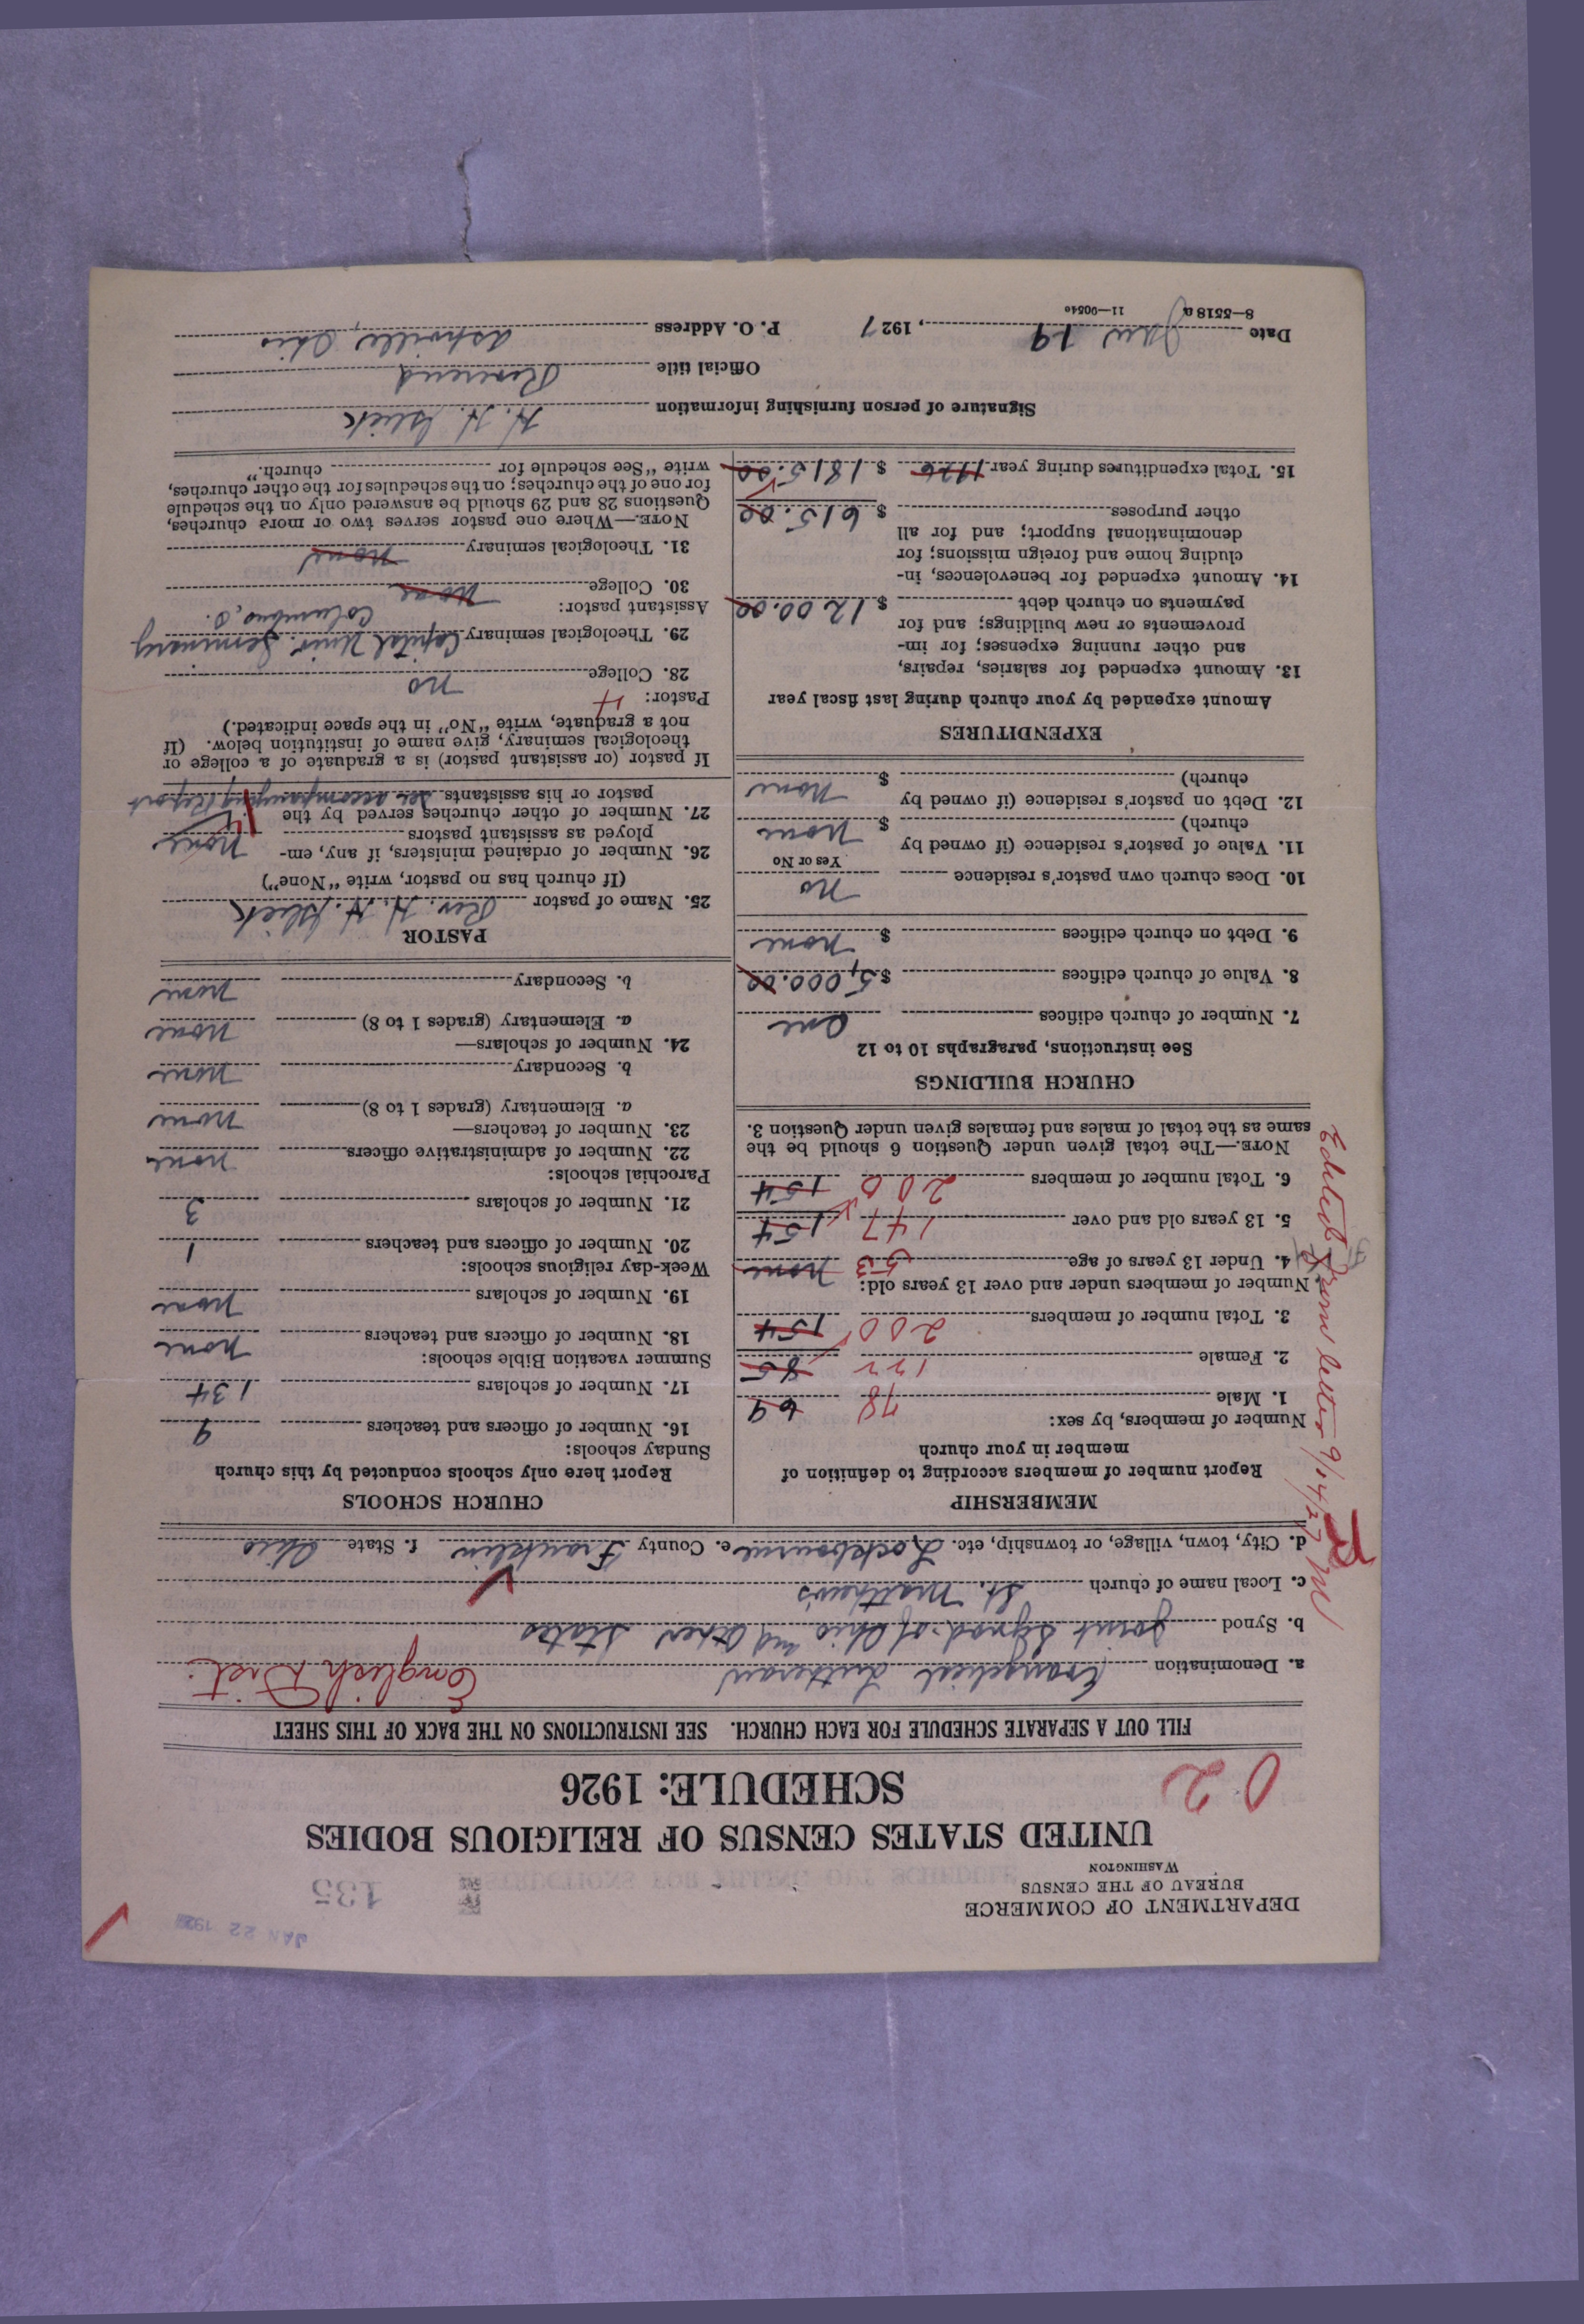 JAN 22 192
135
DEPARTMENT OF COMMERCE
BUREAU OF THE CENSUS
WASHINGTON
UNITED STATES CENSUS OF RELIGIOUS BODIES
02
SCHEDULE: 1926
FILL OUT A SEPARATE SCHEDULE FOR EACH CHURCH. SEE INSTRUCTIONS ON THE BACK OF THIS SHEET
a. Denomination Evangelical Lutheran English Dist.
b. Synod Joint Synod of Ohio and Other States
c. Local name of church St. Matthew's
d. City, town, village, or township, etc. Lockbourne e. County Franklin f. State Ohio
MEMBERSHIP
Report number of members according to definition of
member in your church
Number of members, by sex:
1. Male 78 69
2. Female 122 85
3. Total number of members 200 154
Number of members under and over 13 years old:
4. Under 13 years of age 53 none
5. 13 years old and over 147 154
6. Total number of members 200 154
NOTE.—The total given under Question 6 should be the
same as the total of males and females given under Question 3.
Edited from letter 9/14/27
CHURCH BUILDINGS
See instructions, paragraphs 10 to 12
7. Number of church edifices One
8. Value of church edifices $5,000.00
9. Debt on church edifices $ none
10. Does church own pastor's residence No
Yes or No
11. Value of pastor's residence (if owned by
church) $ none
12. Debt on pastor's residence (if owned by
church) $ none
EXPENDITURES
Amount expended by your church during last fiscal year
13. Amount expended for salaries, repairs,
and other running expenses; for im-
provements or new buildings; and for
payments on church debt $1200.00
14. Amount expended for benevolences, in-
cluding home and foreign missions; for
denominational support; and for all
other purposes $ 615.00
15. Total expenditures during year 1926 $ 1815.00
CHURCH SCHOOLS
Report here only schools conducted by this church
Sunday schools:
16. Number of officers and teachers 9
17. Number of scholars 134
Summer vacation Bible schools:
18. Number of officers and teachers none
19. Number of scholars none
Week-day religious schools:
20. Number of officers and teachers 1
21. Number of scholars 3
Parochial schools:
22. Number of administrative officers none
23. Number of teachers—
a. Elementary (grades 1 to 8) none
b. Secondary none
24. Number of scholars—
a. Elementary (grades 1 to 8) none
b. Secondary none
PASTOR
25. Name of pastor Rev. H. H. Glick
(If church has no pastor, write "None")
26. Number of ordained ministers, if any, em-
ployed as assistant pastors none
27. Number of other churches served by the
pastor or his assistants See accompanying Report
If pastor (or assistant pastor) is a graduate of a college or
theological seminary, give name of institution below. (If
not a graduate, write "No" in the space indicated.)
Pastor: 4
28. College no
29. Theological seminary Capital Univ. Seminary
Columbus, O.
Assistant pastor:
30. College none
31. Theological seminary none
NOTE.—Where one pastor serves two or more churches,
Questions 28 and 29 should be answered only on the schedule
for one of the churches; on the schedules for the other churches,
write "See schedule for church."
Signature of person furnishing information H. H. Glick
Official title Reverend
Date Jan 19, 1927 P. O. Address Ashville, Ohio
8—5518a 11—9054o